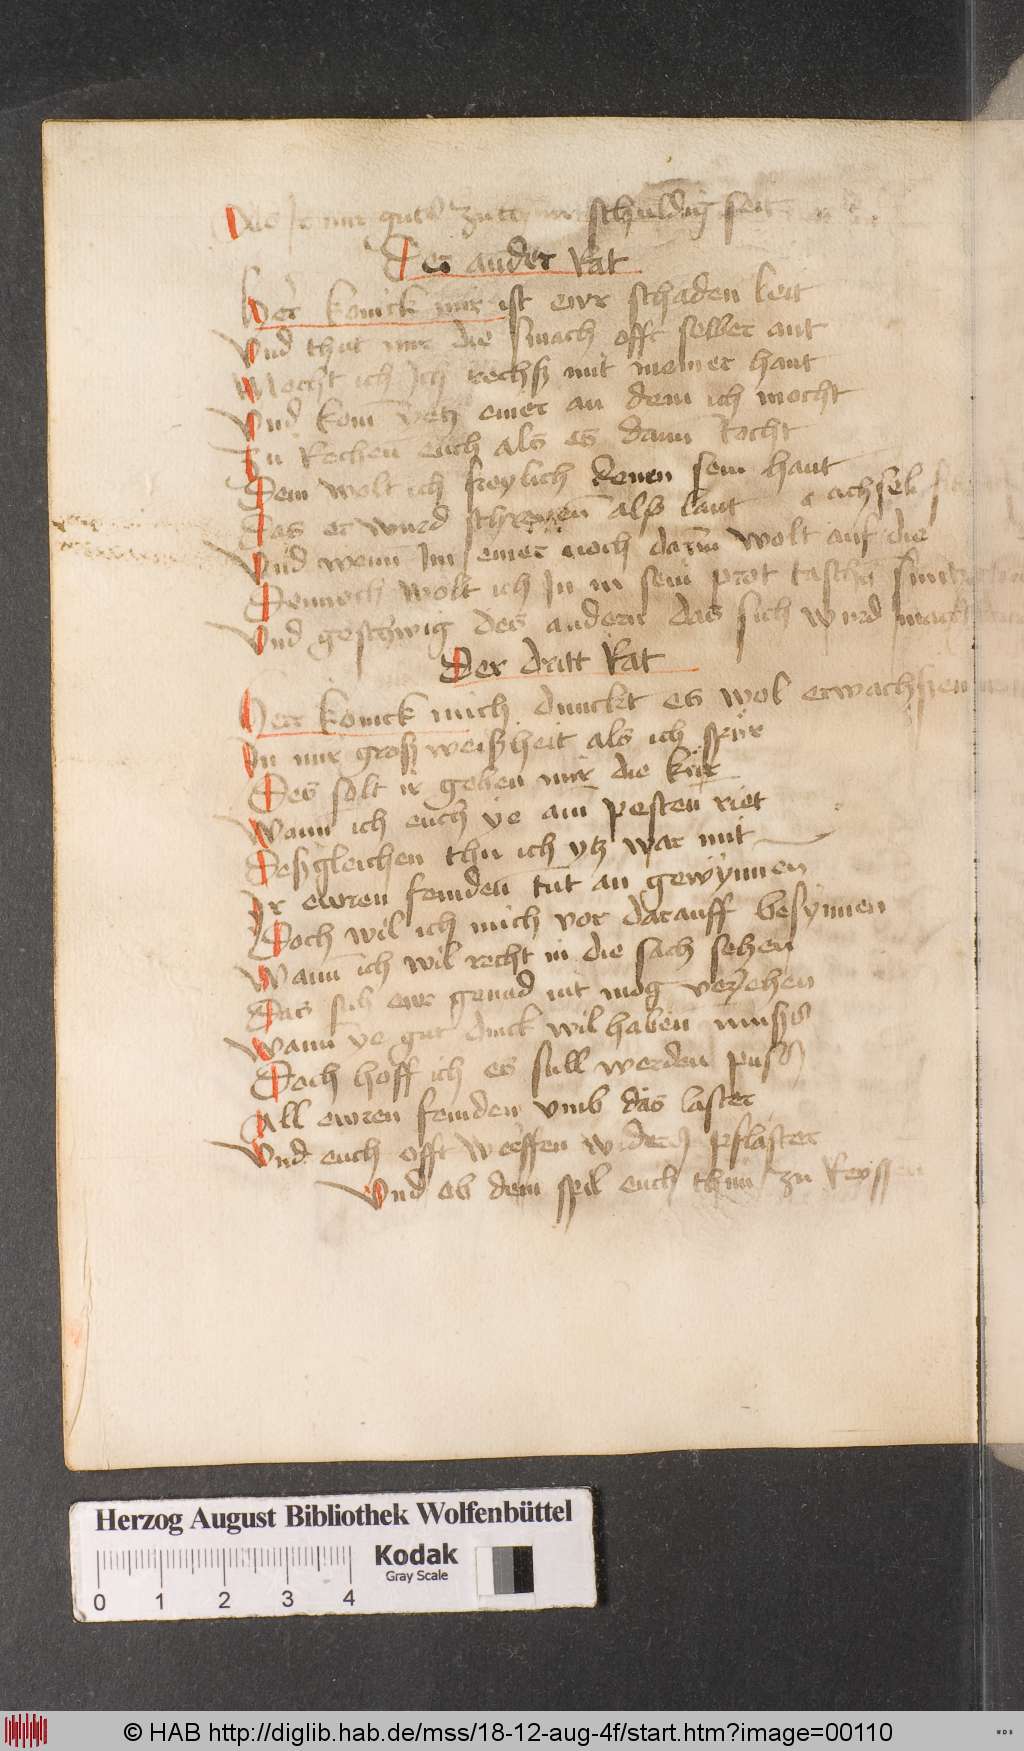 Das Ir mir guts zu schuldig seit
Der ander Rat
Her konick mir ist ewr schaden leit
Vnd thut mir die smach offt selber ant
Mocht ich Ich rechß mit meiner hant
Vnd kom yetz einer an dem ich mocht
Zu Rechen euch als es dann Tocht
Dem wolt ich freylich kenen sein haut
Das er wurd schreyen also laut
achsel
Vnd wenn Im einer noch darin wolt auf die
Dennoch wolt ich In in sein prot taschen
Vnd geschwig des andern das sich wurd
Der dritt Rat
Herr konick mich dunckt es wol erwachßen
In mir groß weißheit als ich spür
Des solt ir geben mir die kür
Wann ich euch ye am pesten riet
Deßgleichen thu ich ytz war mit
Ir ewren feinden tut an gewynnen
Doch wil ich mich vor darauff besynnen
Wann ich wil recht in die sach sehen
Das sich ewr genad nit mog verzehen
Wann ye gut dinck wil haben muß
Doch hoff ich es sull werden puß
All ewren feinden vmb das laster
Vnd euch offt werffen wider I pflaster
Vnd ob dem spil euch thun zu Reyssen
Herzog August Bibliothek Wolfenbüttel
Kodak
Gray Scale
0 1 2 3 4
© HAB http://diglib.hab.de/mss/18-12-aug-4f/start.htm?image=00110